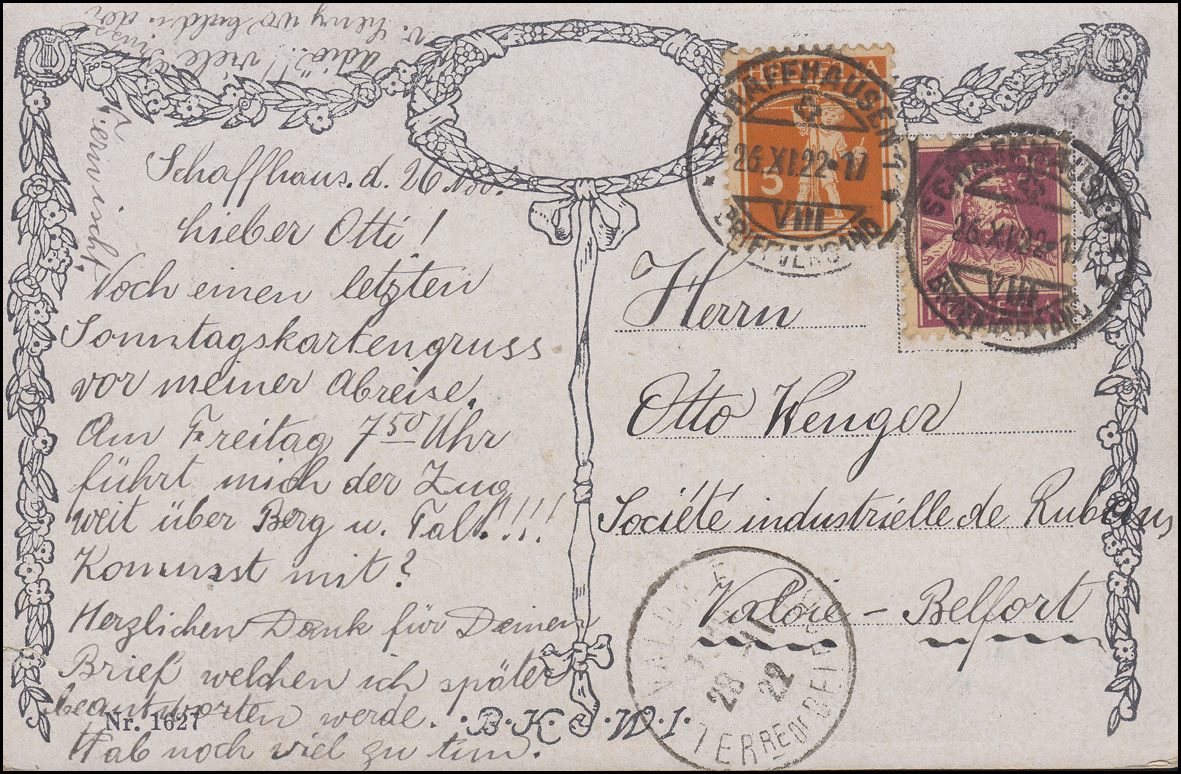 adiö!! viele
v. Henny wo
Schaffhaus. d. 26 Nov.
Lieber Otti!
Noch einen letzten
Sonntagskartengruss
vor meiner Abreise.
Am Freitag 7 50 Uhr
führt mich der Zug
weit über Berg u. Tal!!!!
Kommst mit?
Herzlichen Dank für Deinen
Brief welchen ich später
beantworten werde.
Hab noch viel zu tun.
Nr. 1627
·B·K·W·I·
HELVETIA
5
SCHAFFHAUSEN 1
26.XI.22-17
VIII
BRIEFVERSAND
SCHAFFHAUSEN 1
26.XI.22-17
VIII
BRIEFVERSAND
Herrn
Otto Wenger
Société industrielle de Rubans
Valoie - Belfort
VALDOIE
28 11
22
TERRE DE BELFORT